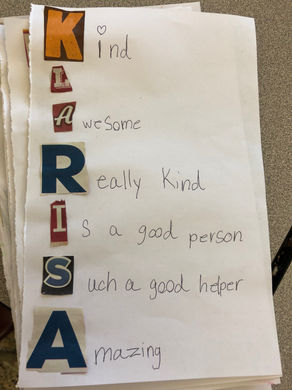 Kind
Awesome
Really Kind
Is a good person
Such a good helper
Amazing